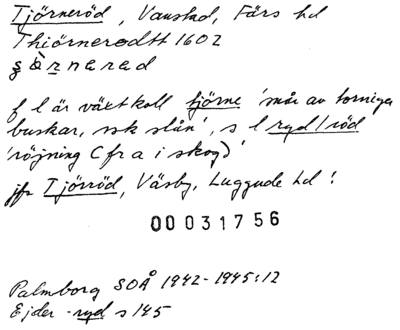 Tjörneröd, Vanstad, Färs hd
Thiörnerodtt 1602
ʂ ö̀ r n a r a d
f l är växtkoll tjörne 'snår av torniga
buskar, ssk slån', s l ryd/röd
'röjning (fr a i skog)'
jfr Tjörröd, Väsby, Luggude hd !
00031756
Palmborg SOÅ 1942-1945:12
Ejder -ryd s 145